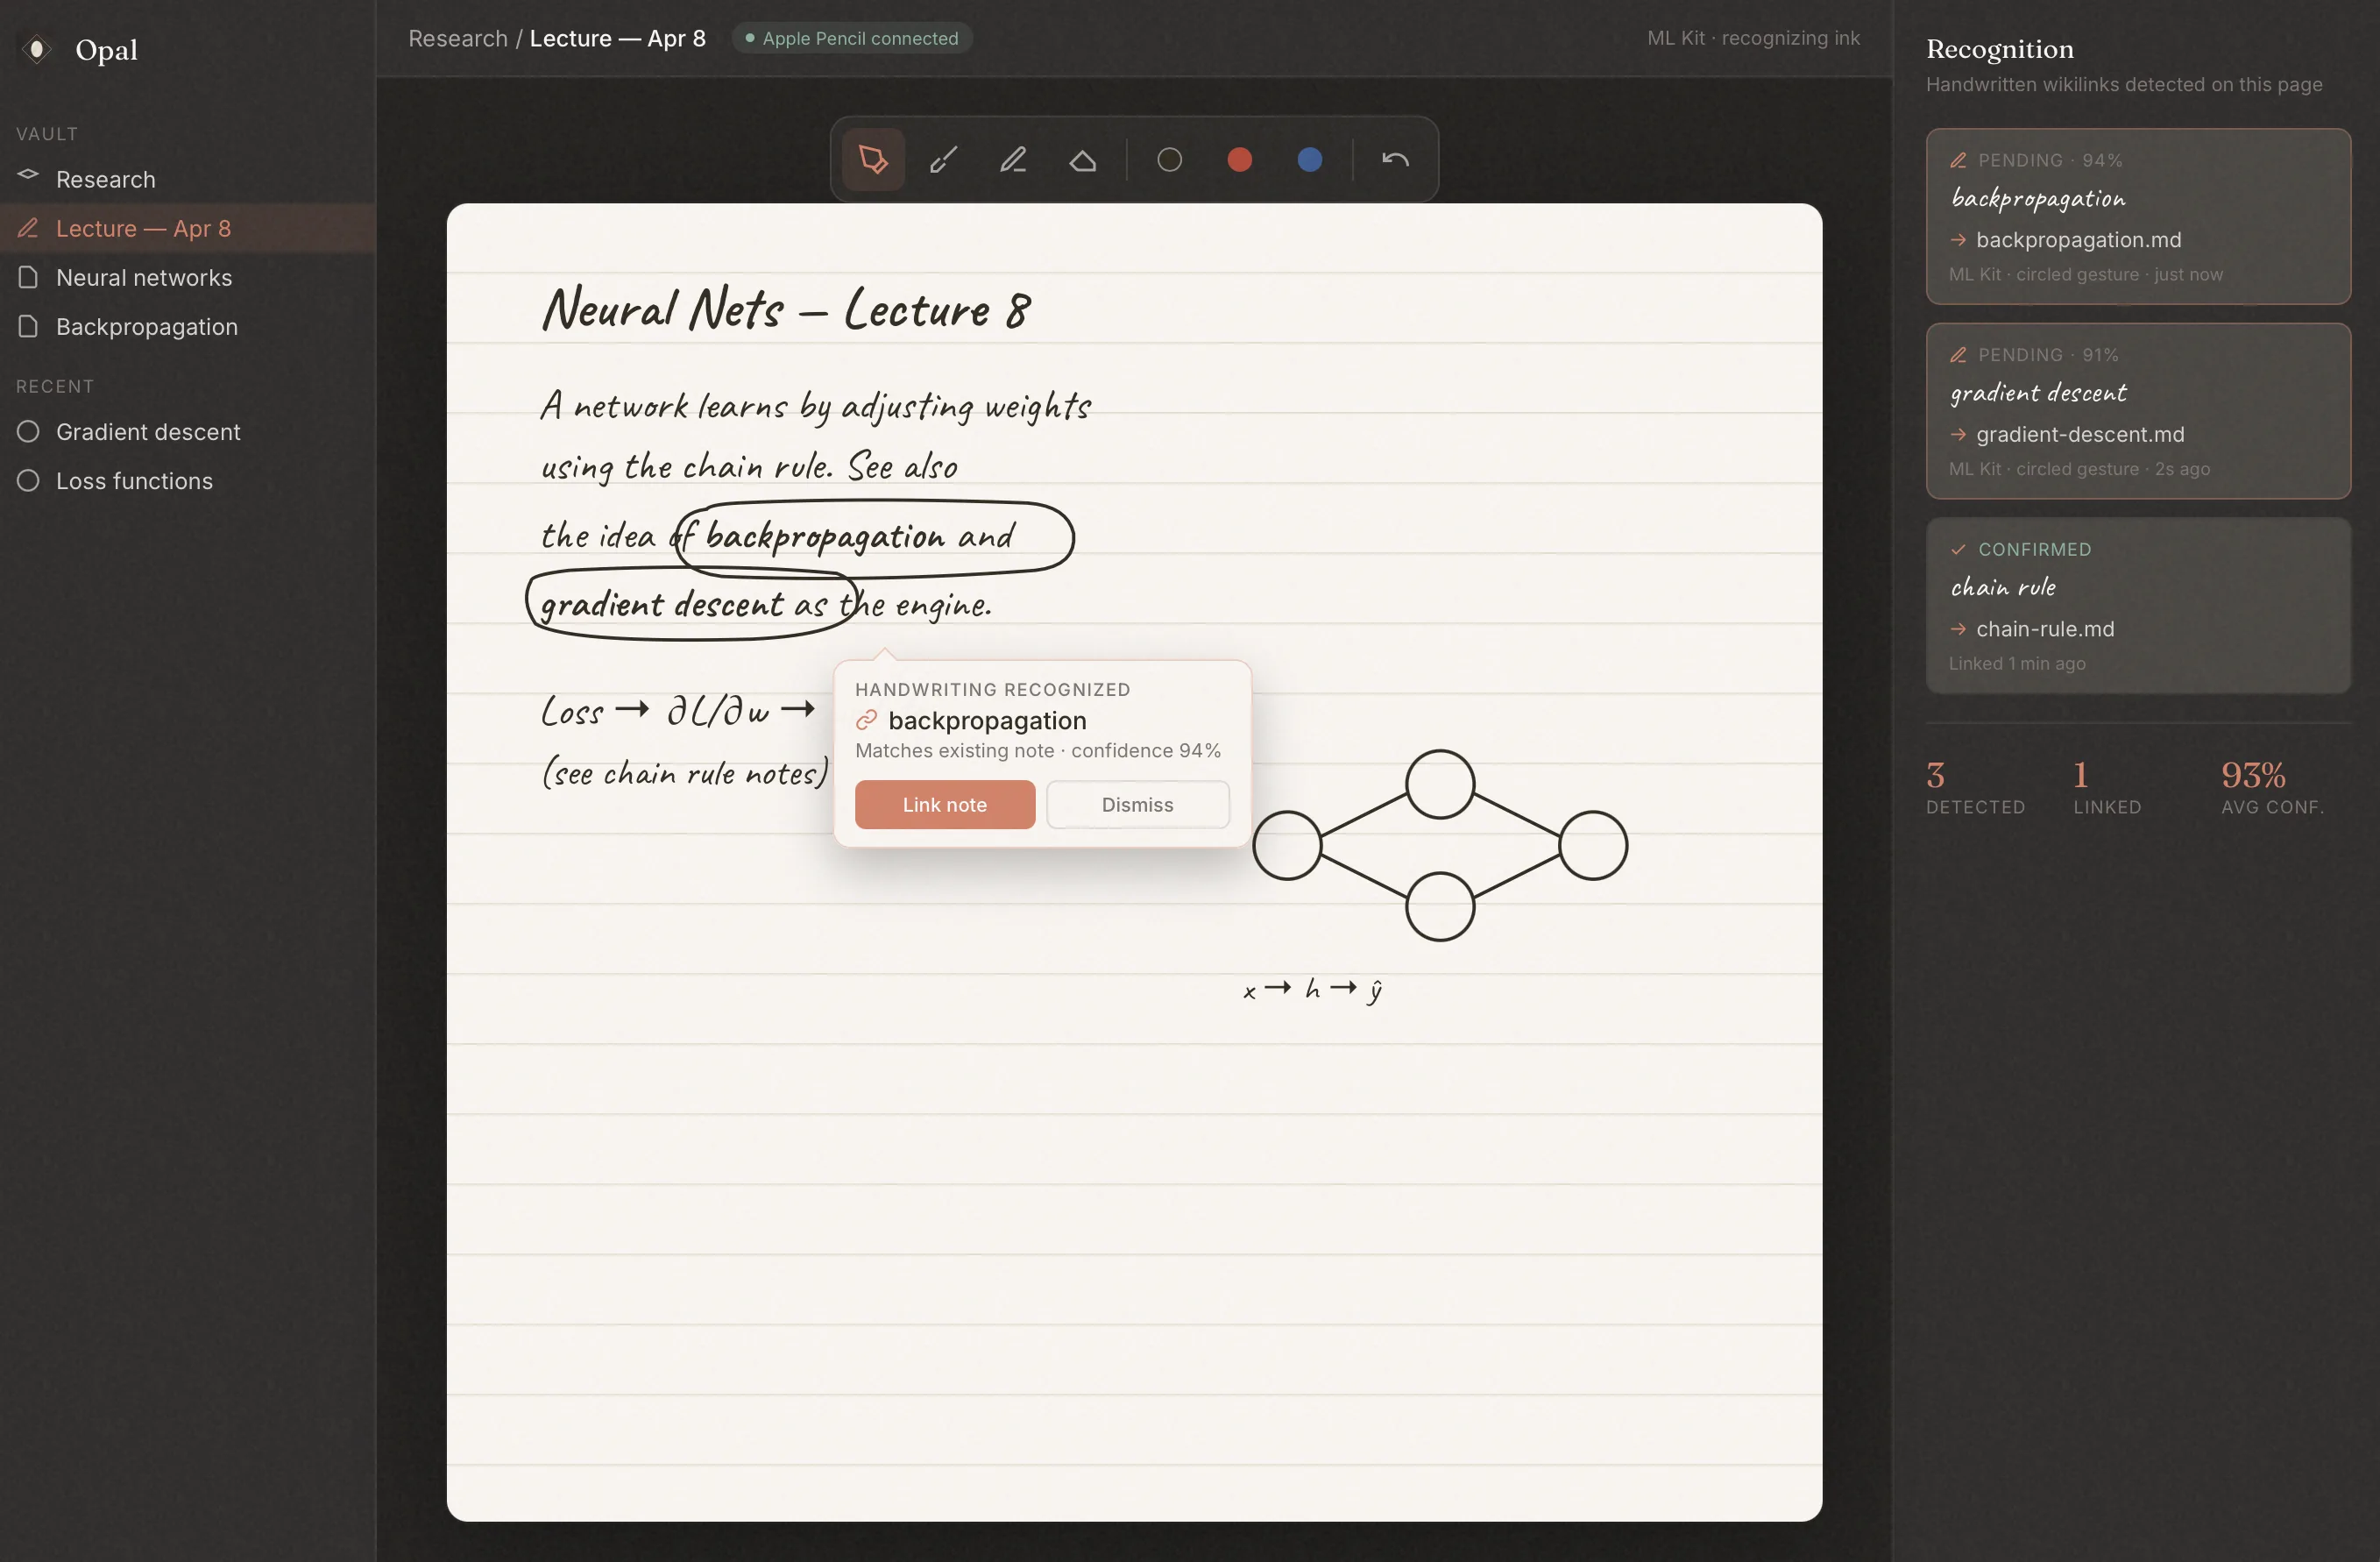 Opal
VAULT
Research
Lecture — Apr 8
Neural networks
Backpropagation
RECENT
Gradient descent
Loss functions
Research / Lecture — Apr 8
Apple Pencil connected
ML Kit · recognizing ink
Neural Nets — Lecture 8
A network learns by adjusting weights
using the chain rule. See also
the idea of backpropagation and
gradient descent as the engine.
Loss → ∂L/∂w →
(see chain rule notes)
HANDWRITING RECOGNIZED
backpropagation
Matches existing note · confidence 94%
Link note
Dismiss
x → h → ŷ
Recognition
Handwritten wikilinks detected on this page
PENDING · 94%
backpropagation
→ backpropagation.md
ML Kit · circled gesture · just now
PENDING · 91%
gradient descent
→ gradient-descent.md
ML Kit · circled gesture · 2s ago
CONFIRMED
chain rule
→ chain-rule.md
Linked 1 min ago
3
DETECTED
1
LINKED
93%
AVG CONF.